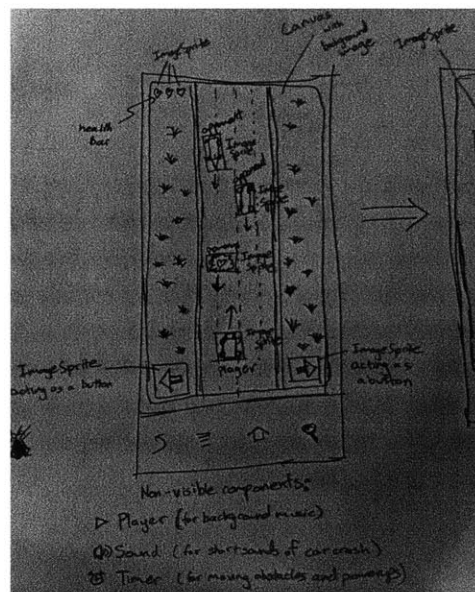 ImageSprite
Canvas
with
background
image
ImageSprite
health
bar
opponent
Image
Sprite
opponent
Image
Sprite
Image
Sprite
Image
Sprite
Player
ImageSprite
acting as a button
ImageSprite
acting as
a button
Non-visible components:
Player (for background music)
Sound (for short sands of car crash)
Timer (for moving obstacles and powerups)